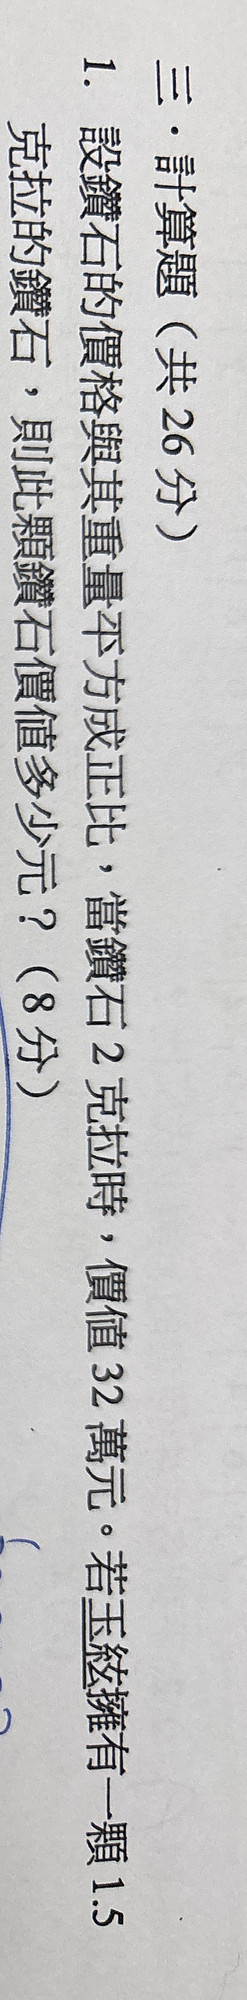 三．計算題（共 26 分）
1. 設鑽石的價格與其重量平方成正比，當鑽石 2 克拉時，價值 32 萬元。若玉絃擁有一顆 1.5
克拉的鑽石，則此顆鑽石價值多少元？（8 分）